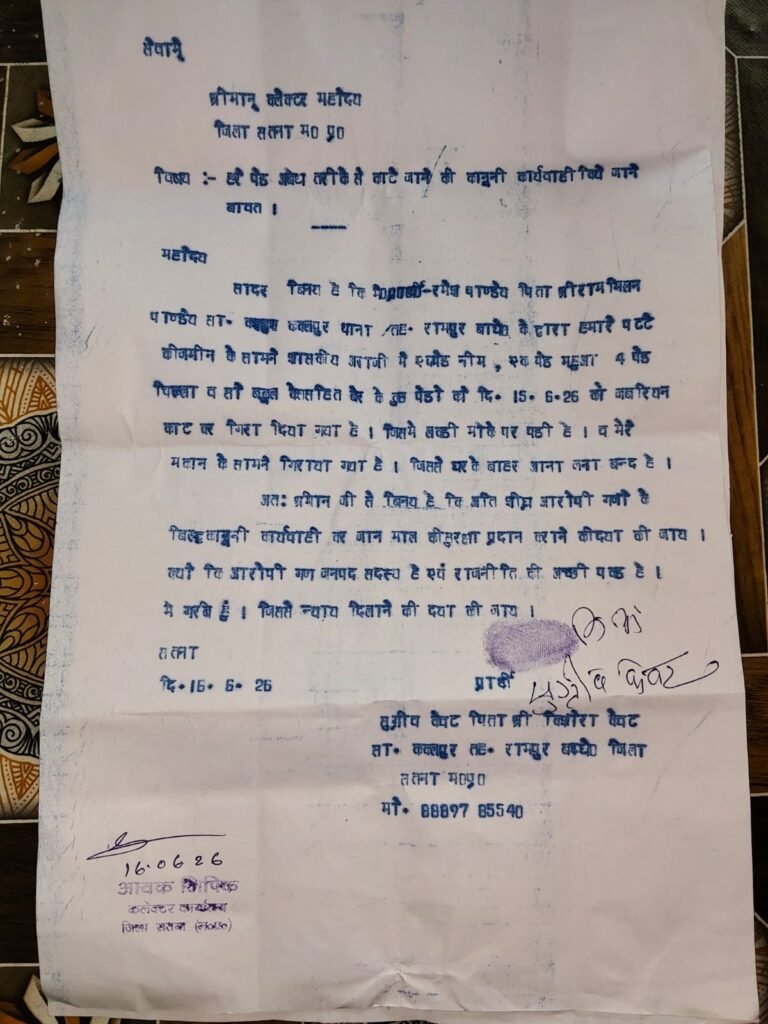 सेवामें
श्रीमान् क्लेक्टर महोदय
जिला सतना म0 प्र0
विषय :- हरे पेड अवैध तरीके से काटे जाने की कानूनी कार्यवाही किये जाने
बावत ।
महोदय
सादर विनय है कि रमेश पाण्डेय पिता श्रीराम मिलन
पाण्डेय सा. ककलपुर थाना /तह. रामपुर बाघे0 के द्वारा हमारे पटटे
कीजमीन के सामने शासकीय अराजी मे एकपेड नीम , एक पेड महुआ 4 पेड
चिल्ला व सौ बबूल केसहित बेर के कुछ पेडो को दि. 15. 6.26 को जबरियन
काट कर गिरा दिया गया है । जिसमे लकडी मौके पर पडी है । व मेरे
मकान के सामने गिराया गया है । जिससे घर के बाहर आना जना बन्द है ।
अतः श्रीमान जी से विनय है कि अति शीघ्र आरोपी गणो के
बिरूद्वकानूनी कार्यवाही कर जान माल कीसुरक्षा प्रदान कराने कीदया की जाय ।
क्यो कि आरोपी गण जनपद सदस्य है एवं राजनीति की अच्छी पकड है ।
मे गरीब हूं । जिससे न्याय दिलाने की दया की जाय ।
सतना
दि.16. 6. 26
प्रार्थी
सुग्रीव केवट
सुग्रीव केवट पिता श्री किशोरा केवट
सा. ककलपुर तह. रामपुर बाघे0 जिला
सतना म0प्र0
मो. 88897 85540
16.06.26
आवक लिपिक
कलेक्टर कार्यालय
जिला सतना (म0प्र0)